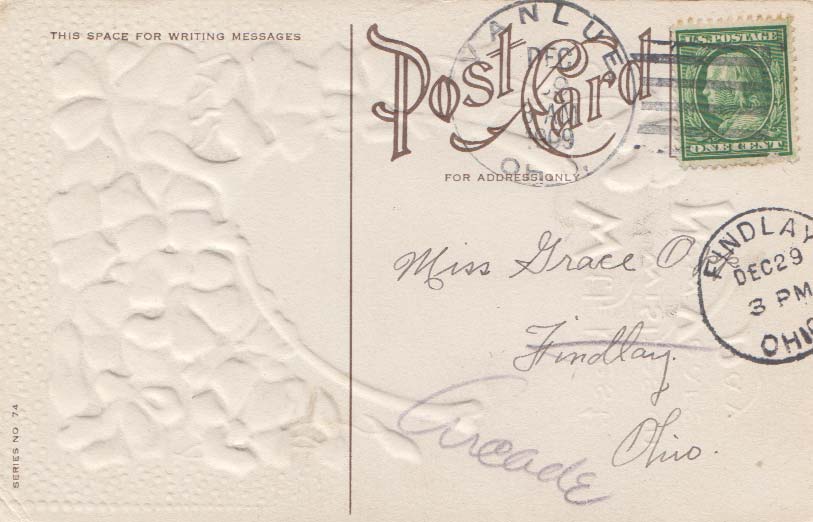 THIS SPACE FOR WRITING MESSAGES
Post Card
FOR ADDRESS ONLY
VANLUE
DEC
AM
1909
OHIO.
U.S. POSTAGE
ONE CENT
FINDLAY
DEC 29
3 PM
OHIO
Miss Grace
Findlay.
Arcade
Ohio.
SERIES NO. 74